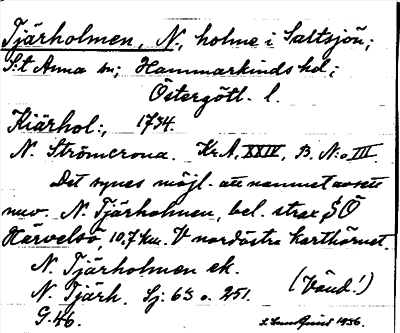 Tjärholmen, N., holme i Saltsjön;
S:t Anna sn; Hammarkinds hd;
Östergötl. l.
Kiärhol:, 1734.
N. Strömcrona. Kr.A. XXIV, B. N:o III.
Det synes möjl. att namnet avsett
nuv. N. Tjärholmen, bel. strax SO
Härvelsö, 10,7 km. V nordöstra karthörnet.
N. Tjärholmen ek.
N. Tjärh. Sj. 63 o. 251. (Vänd!)
G. 46. 1936.